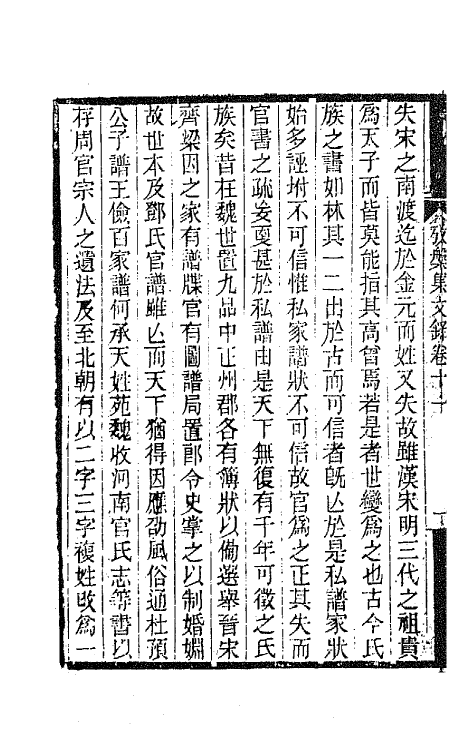 失宋之南渡迄於金元而姓又失故雖漢宋明三代之祖貴
爲太子而皆莫能指其高曾焉若是者世變爲之也古今氏
族之書如林其一二出於古而可信者旣亾於是私譜家狀
始多誣坿不可信惟私家譜狀不可信故官爲之正其失而
官書之疏妄更甚於私譜由是天下無復有千年可徵之氏
族矣昔在魏世置九品中正州郡各有簿狀以備選舉晉宋
齊梁因之家有譜牒官有圖譜局置郎令史掌之以制婚姻
故世本及鄧氏官譜雖亾而天下猶得因應劭風俗通杜預
公子譜王儉百家譜何承天姓苑魏收河南官氏志等書以
存周官宗人之遺法及至北朝有以二字三字複姓改爲一
攷槃集文錄卷十一